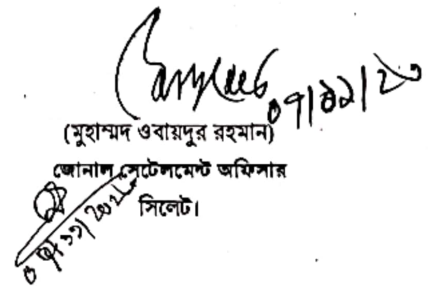 ০৭/১২/২০
(মুহাম্মদ ওবায়দুর রহমান)
জোনাল সেটেলমেন্ট অফিসার
সিলেট।